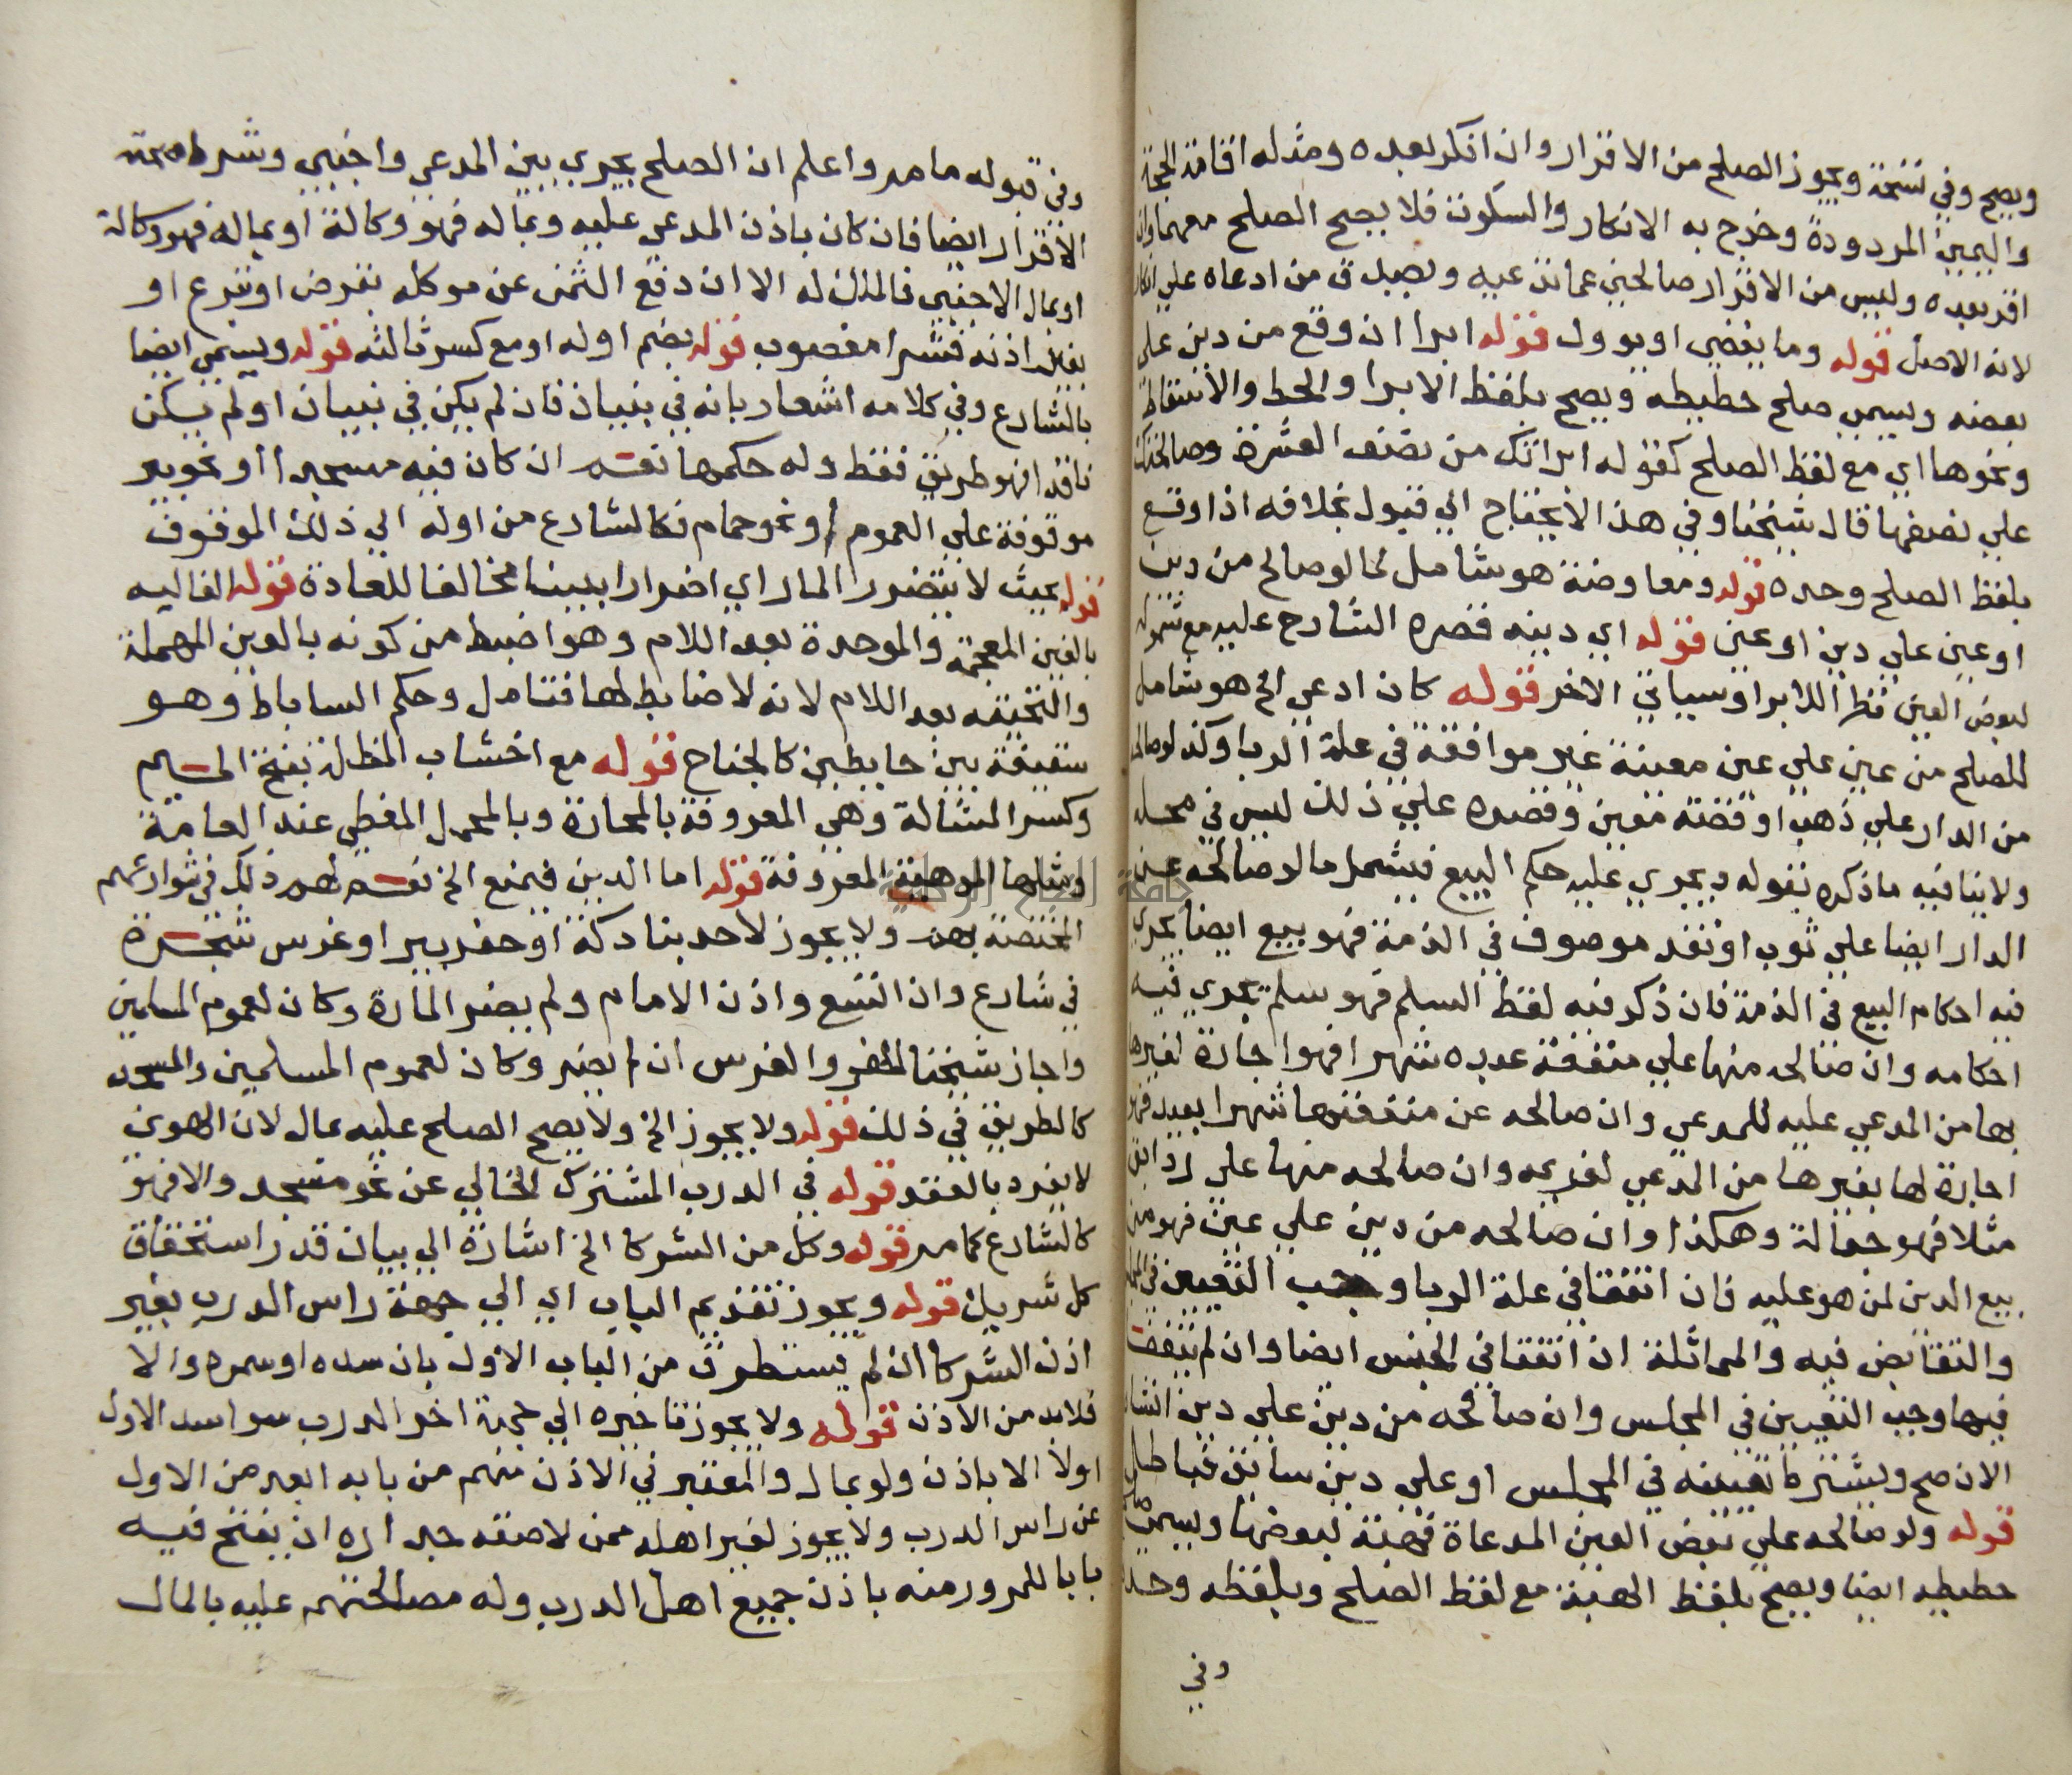 ويصح وفي نسخة ويجوز الصلح من الاقرار وان انكر بعده ومثله اقامة الحجة
واليمين المردودة وخرج به الانكار والسكوت فلا يصح الصلح معهما وان
اقر بعده وليس من الاقرار صالحني عما تدعيه ويصدق من ادعاه علي انكار
لانه الاصل قوله وما يفضي او يوول قوله ابرا ان وقع من دين علي
بعضه ويسمي صلح حطيطه ويصح بلفظ الابرا والحط والاسقاط
ونحوها اي مع لفظ الصلح كقوله ابراتك من نصف العشرة وصالحتك
علي نصفها قال شيخنا وفي هذا لا يحتاج الي قبول بخلافه اذا وقع
بلفظ الصلح وحده قوله ومعاوضة هو شامل لما لو صالح من دين
او عين علي دين او عين قوله اي دينه قصره الشارح عليه مع شموله
لبعض العين نظر اللابرا وسياتي الاخر قوله كان ادعي الخ هو شامل
للصلح من عين علي عين معينة غير موافقة في علة الربا وكذا لو صالحه
من الدار علي ذهب او فضة معين وقصره علي ذلك ليس في محله
ولا ينافيه ما ذكره بقوله ويجري عليه حكم البيع فيشمل ما لو صالحه عن
الدار ايضا علي ثوب او نقد موصوف في الذمة فهو بيع ايضا يجري
فيه احكام البيع في الذمة فان ذكر فيه لفظ السلم فهو سلم تجري فيه
احكامه وان صالحه منها علي منفعة عبده شهرا فهو اجارة لغيرها
بها من المدعي عليه للمدعي وان صالحه عن منفعتها شهرا بعبد فهو
اجارة لها بغيرها من المدعي لغريمه وان صالحه منها علي رد ابق
مثلا فهو جعالة وهكذا وان صالحه من دين علي عين فهو من
بيع الدين لمن هو عليه فان اتفقا في علة الربا وجب التعيين في المجلس
والتقابض فيه والمماثلة ان اتفقا في الجنس ايضا وان لم يتفقا
فيها وجب التعيين في المجلس وان صالحه من دين علي دين انشاه
الان صح ويشترط تعيينه في المجلس او علي دين سابق فباطل
قوله ولو صالحه علي بعض العين المدعاة فهبة لبعضها ويسمي صلح
حطيطه ايضا ويصح بلفظ الهبة مع لفظ الصلح وبلفظه وحده
وفي
وفي قبوله ما مر واعلم ان الصلح يجري بين المدعي واجنبي وشرط صحته
الاقرار ايضا فان كان باذن المدعي عليه وبماله فهو وكالة او بماله فهو وكالة
او بمال الاجنبي فالملك له الا ان دفع الثمن عن موكله بقرض او تبرع او
بغير اذنه فشرا مغصوب قوله بضم اوله او مع كسر ثالثه قوله ويسمي ايضا
بالشارع وفي كلامه اشعار بانه في بنيان فان لم يكن في بنيان او لم يكن
نافذا فهو طريق فقط وله حكمها نعم ان كان فيه مسجد او نحو بير
موقوفة علي العموم او نحو حمام فكالشارع من اوله الي ذلك الموقوف
قوله بحيث لا يتضرر المار اي اضرارا بينا مخالفا للعادة قوله الغالبه
بالغين المعجمة والموحدة بعد اللام وهو اضبط من كونه بالعين المهملة
والتحتيه بعد اللام لانه لا ضابط لها فتامل وحكم الساباط وهو
سقيفة بين حايطين كالجناح قوله مع اخشاب المظلة بفتح الميم
وكسر المشالة وهي المعروفة بالمحارة وبالمحمل المغطي عند العامة
ومثلها المرهية المعروفة قوله اما الذمي فيمنع الخ نعم لهم ذلك في شوارعهم
المختصة بهم ولا يجوز لاحد بنا دكة او حفر بير او غرس شجرة
في شارع وان اتسع واذن الامام ولم يضر المارة وكان لعموم المسلمين
واجاز شيخنا الحفر والغرس ان لم يضر وكان لعموم المسلمين والمسجد
كالطريق في ذلك قوله ولا يجوز الخ ولا يصح الصلح عليه بمال لان الهوي
لا يفرد بالعقد قوله في الدرب المشترك الخالي عن نحو مسجد والا فهو
كالشارع كما مر قوله وكل من الشركا الخ اشارة الي بيان قدر استحقاق
كل شريك قوله ويجوز تقديم الباب اي الي جهة راس الدرب بغير
اذن الشركا ان لم يستطرق من الباب الاول بان سده او سمره والا
فلابد من الاذن قوله ولا يجوز تاخيره الي جهة اخر الدرب سوا سد الاول
اولا الا باذن ولو بمال والمعتبر في الاذن منهم من بابه ابعد من الاول
عن راس الدرب ولا يجوز لغير اهله ممن لاصقه جداره ان يفتح فيه
بابا للمرور منه باذن جميع اهل الدرب وله مصالحتهم عليه بالمال